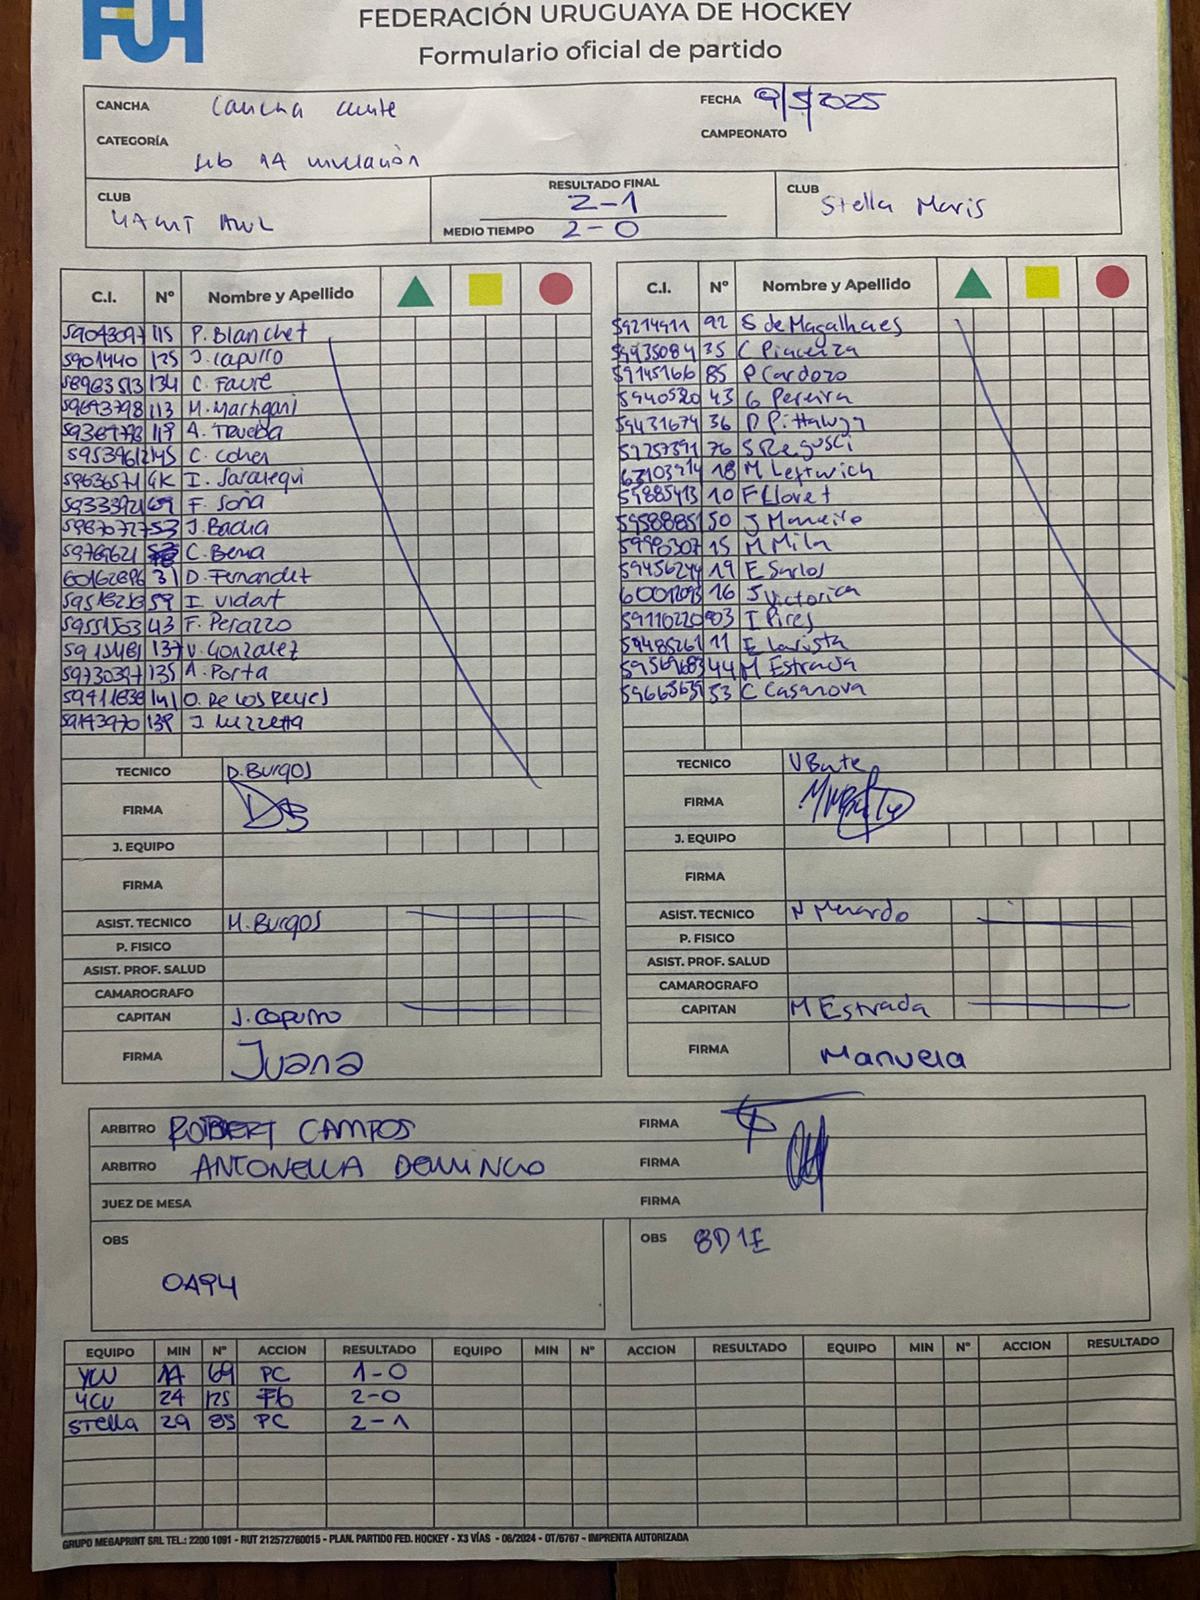 FUH
FEDERACIÓN URUGUAYA DE HOCKEY
Formulario oficial de partido
CANCHA Cancha
FECHA 9/5/2025
CATEGORÍA sub 14
CAMPEONATO
CLUB
RESULTADO FINAL 2-1
MEDIO TIEMPO 2-0
CLUB Stella Maris
C.I. Nº Nombre y Apellido
115 P. Blanchet
5901440 125 J. Capurro
58963513 134 C. Faure
59643798 113 M. Martigani
119 A. Trueba
C. Cohen
I. Sarasequi
69 F. Soña
53 J. Badia
59769621 C. Bena
31 D. Fernandez
59 I. Vidart
59551503 43 F. Perazzo
137 V. Gonzalez
59730397 135 A. Porta
59411838 141 O. De los Reyes
59143970 139 J. Luzzetta
TECNICO D. Burgos
FIRMA
J. EQUIPO
FIRMA
ASIST. TECNICO M. Burgos
P. FISICO
ASIST. PROF. SALUD
CAMAROGRAFO
CAPITAN J. Capurro
FIRMA Juana
C.I. Nº Nombre y Apellido
59214911 92 S de Magalhaes
59435084 35 C Piacenza
59145166 85 P Cardozo
5940520 43 G Pereira
59431674 36 P Pittaluga
59257391 76 S Regusci
63103214 18 M Leftwich
59885413 10 F Lloret
59588851 50 J Maneiro
59993307 15 M Mila
59456244 19 E Sarlos
16 J Victorica
59110220 03 I Pires
59485261 11 E Lavista
44 M Estrada
59663639 53 C Casanova
TECNICO V Bate
FIRMA
J. EQUIPO
FIRMA
ASIST. TECNICO N Menardo
P. FISICO
ASIST. PROF. SALUD
CAMAROGRAFO
CAPITAN M Estrada
FIRMA Manuela
ARBITRO ROBERT CAMPOS FIRMA
ARBITRO ANTONELLA DOMINGO FIRMA
JUEZ DE MESA FIRMA
OBS 0A94
OBS 8D1E
EQUIPO MIN Nº ACCION RESULTADO EQUIPO MIN Nº ACCION RESULTADO EQUIPO MIN Nº ACCION RESULTADO
YCU 69 PC 1-0
YCU 24 125 FG 2-0
Stella 29 85 PC 2-1
GRUPO MEGAPRINT SRL TEL.: 2200 1091 - RUT 212572760015 - PLAN. PARTIDO FED. HOCKEY - X3 VÍAS - 06/2024 - OT/6767 - IMPRENTA AUTORIZADA